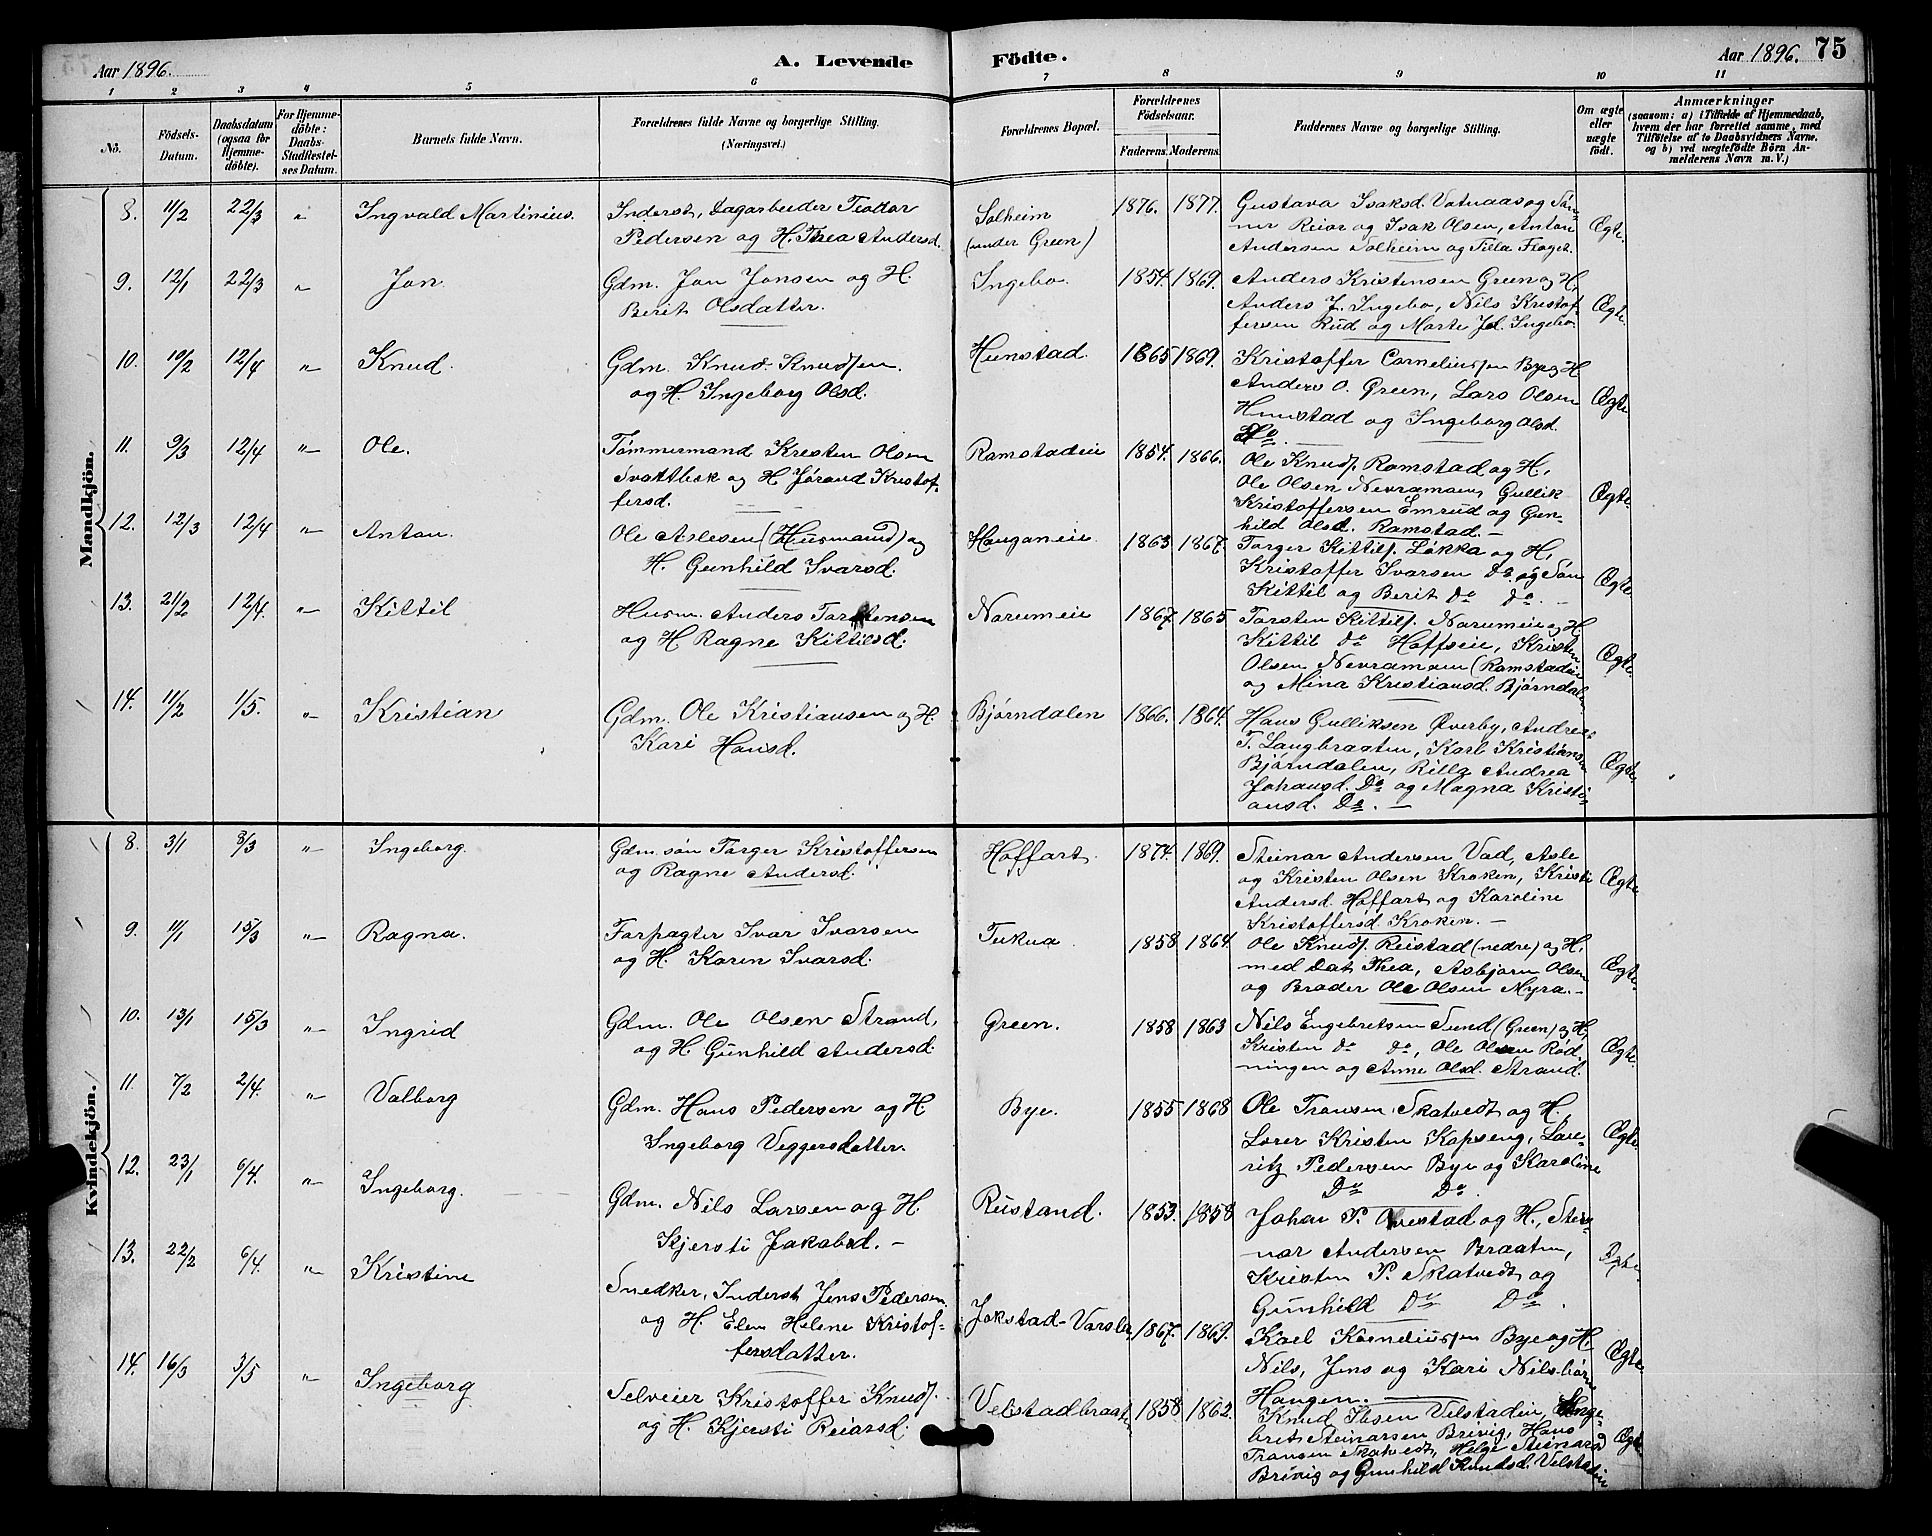 Aar 1896. A. Levende Födte. Aar 1896. 75
1 2 3 4 5 6 7 8 9 10 11
No. Födsels-Datum. Daabsdatum (ogsaa for Hjemme-döbte). For Hjemme-döbte: Daabs-Stadfæstel-ses Datum. Barnets fulde Navn. Forældrenes fulde Navne og borgerlige Stilling. (Næringsvei.) Forældrenes Bopæl. Forældrenes Födselsaar. Faderens. Moderens. Faddernes Navne og borgerlige Stilling. Om ægte eller uægte födt. Anmærkninger (saasom: a) i Tilfælde af Hjemmedaab, hvem der har forrettet samme, med Tilföielse af to Daabsvidners Navne. og b) ved uægtefödte Börn Anmelderens Navn m. V.)
Mandkjön.
8. 11/2 22/3 " Ingvald Martinius. Inderst, Dagarbeider Teodor Solheim 1876. 1877. Gustava Isaksd. Vatnaas og Søn-
Pedersen og H. Thea Andersd. (under Green) ner Reior og Isak Olsen, Anton Ægte.
Andersen Solheim og Tilla Flaget.
9. 12/1 22/3 " Jon. Gdm. Jon Jonsen og H. Ingebo. 1854. 1869. Anders Kristensen Green og H,
Berit Olsdatter. Anders J. Ingebo, Nils Kristof- Ægte.
fersen Rud og Marte Jd. Ingebo.
10. 10/2 12/4 " Knud. Gdm. Knud Knudsen. Hunstad. 1865 1869. Kristoffer Corneliussen Bye og H.
og H. Ingeborg Olsd. Anders O. Green, Lars Olsen Ægte
Hunstad og Ingeborg Olsd.
Do.
11. 9/3 12/4 " Ole. Tømmermand Kresten Olsen Ramstadeie 1854. 1866. Ole Knuds. Ramstad og H,
Svattbek og H. Jørand Kristof- Ole Olsen Nevramoen, Gullik Ægte.
fersd. Kristoffersen Emrud og Gun-
hild Olsd. Ramstad.
12. 12/3 12/4 " Anton. Ole Aslesen (Husmand) og Hauganeie 1863 1867. Torger Kittils. Løkka og H,
H. Gunhild Ivarsd. Kristoffer Ivarsen Do og Søn Ægte.
Kittil og Berit Do Do.
13. 21/2 12/4. " Kittil Husm. Anders Torstensen Narumeie 1867 1865 Torsten Kittils. Narumeie og H
og H Ragne Kittilsd. Kittil Do Hoffseie, Kristen Ægte.
Olsen Nevramoen (Ramstadeie
og Mina Kristiansd. Bjørndalen
14. 11/2 1/5. " Kristian Gdm. Ole Kristiansen og H. Bjørndalen 1866. 1864. Hans Gulliksen Øverby, Andreas
Kari Hansd. T. Langbraaten, Karl Kristiansen
Bjørndalen, Rilla Andrea Ægte
Johansd. Do og Magna Kristi-
ansd. Do.
Kvindekjön.
8. 3/1 8/3 " Ingeborg. Gdm. søn Torger Kristoffersen Hoffart. 1874. 1869. Steinar Andersen Vad, Asle
og Ragne Andersd. og Kristen Olsen Kroken, Kristi Ægte
Andersd. Hoffart og Karoline
Kristoffersd. Kroken.
9. 11/1 15/3 " Ragna. Forpagter Ivar Ivarsen Tukua. 1858 1864. Ole Knuds. Reistad (nedre) og H,
og H. Karen Ivarsd. med Dat Thea, Asbjørn Olsen Ægte.
og Broder Ole Olsen Myra.
10. 13/1 15/3 " Ingrid Gdm. Ole Olsen Strand, Green. 1858 1863 Nils Engebretsen Sund (Green) og H,
og H. Gunhild Andersd. Kristen Do Do, Ole Olsen Rød- Ægte.
ningen og Anne Olsd. Strand.
11. 7/2 2/4. " Valborg Gdm. Hans Pedersen og H Bye. 1855 1868 Ole Transen Skatvedt og H,
Ingeborg Veggersdatter. Lærer Kristen Kopseng, Lau- Ægte.
ritz Pedersen Bye og Karoline
Do Do.
12. 23/1 6/4. " Ingeborg. Gdm. Nils Larsen og H. Rustand. 1853. 1858 Johan P. Ovestad og H, Stei-
Kjersti Jakobsd. nar Andersen Braaten, Ægte.
Kristen P. Skatvedt og
Gunhild Do Do.
13. 22/2 6/4. " Kristine Snedker, Inderst Jens Pedersen Jokstad-Varslu 1867. 1869. Karl Korneliussen Bye og H
og H. Elen Helene Kristof- Nils, Jens og Kari Nilsbørn Ægte
fersdatter. Haugen.
14. 16/3 3/5 " Ingeborg Selveier Kristoffer Knuds. Velstadbraaten 1858. 1862. Knud Ibsen Velstadeie, Enge-
og H. Kjersti Reiarsd. bret Steinarsen Brivig, Hans Ægte
Transen Skatvedt, Helge Steinarsd
Brivig og Gunhild Knudsd. Velstadeie